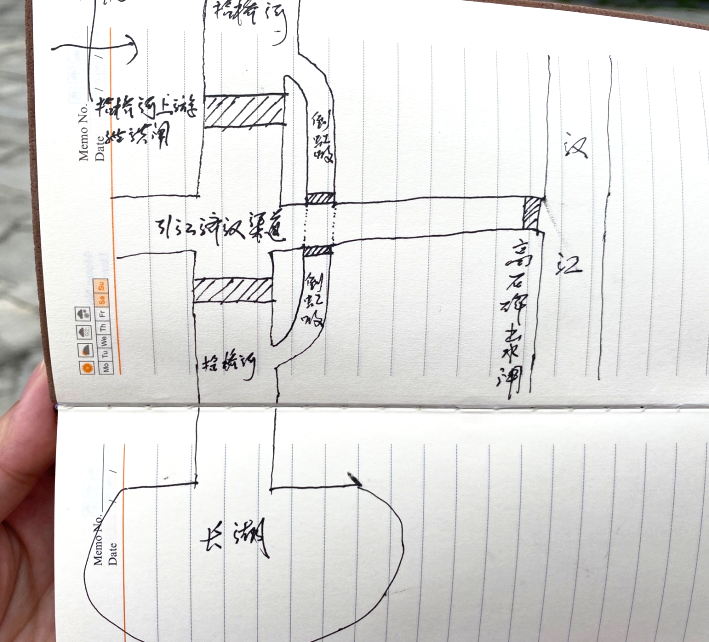 拾桥河
Memo No.
Date / /
拾桥河上游
泄洪闸
倒虹吸
汉江
引江济汉渠道
高石碑出水闸
倒虹吸
拾桥河
Mo Tu We Th Fr Sa Su
长湖
Memo No.
Date / /